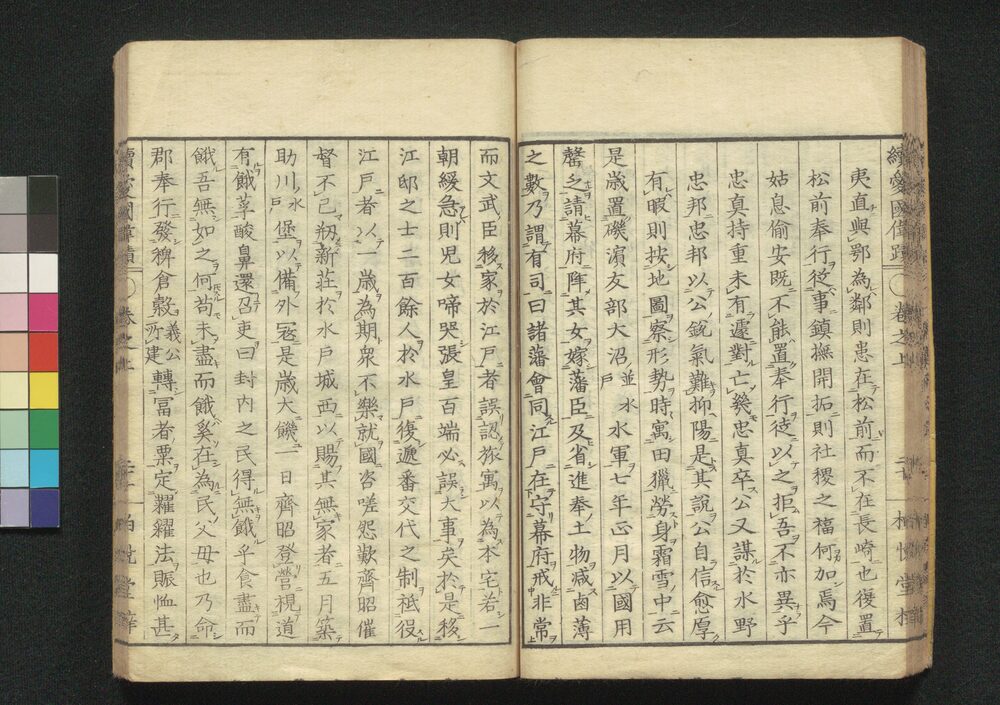 夷直與鄂為鄰則患在松前而不在長崎也復置
松前奉行從事鎮撫開拓則社稷之福何加焉今
姑息偷安既不能置奉行從以之拒吾不亦異乎
忠真持重未有遽對亡幾忠真卒公又謀於水野
忠邦忠邦以公銳氣難抑陽是其說公自信愈厚
有暇則按地圖察形勢時寓田獵勞身霜雪中云
是歲置磯濱友部大沼並水戶水軍七年正月以國用
罄乏請幕府降其女嫁藩臣及省進奉土物減鹵薄
之數乃謂有司曰諸藩會同江戶在守幕府戒非常
而文武臣移家於江戶者誤認旅寓以為本宅若一
朝緩急則兒女啼哭張皇百端必誤大事矣於是移
江邸之士二百餘人於水戶復遞番交代之制祗役
江戶者以一歲為期眾不樂就國咨嗟怨歎齊昭催
督不已剏新莊於水戶城西以賜其無家者五月築
助川水戶堡以備外寇是歲大饑一日齊昭登營視道
有餓莩酸鼻還召吏曰封内之民得無餓乎食盡而
餓吾無如之何苟未盡而餓奚在為民父母也乃命
郡奉行發稗倉穀義公所建轉冨者粟定糶糴法賑恤甚